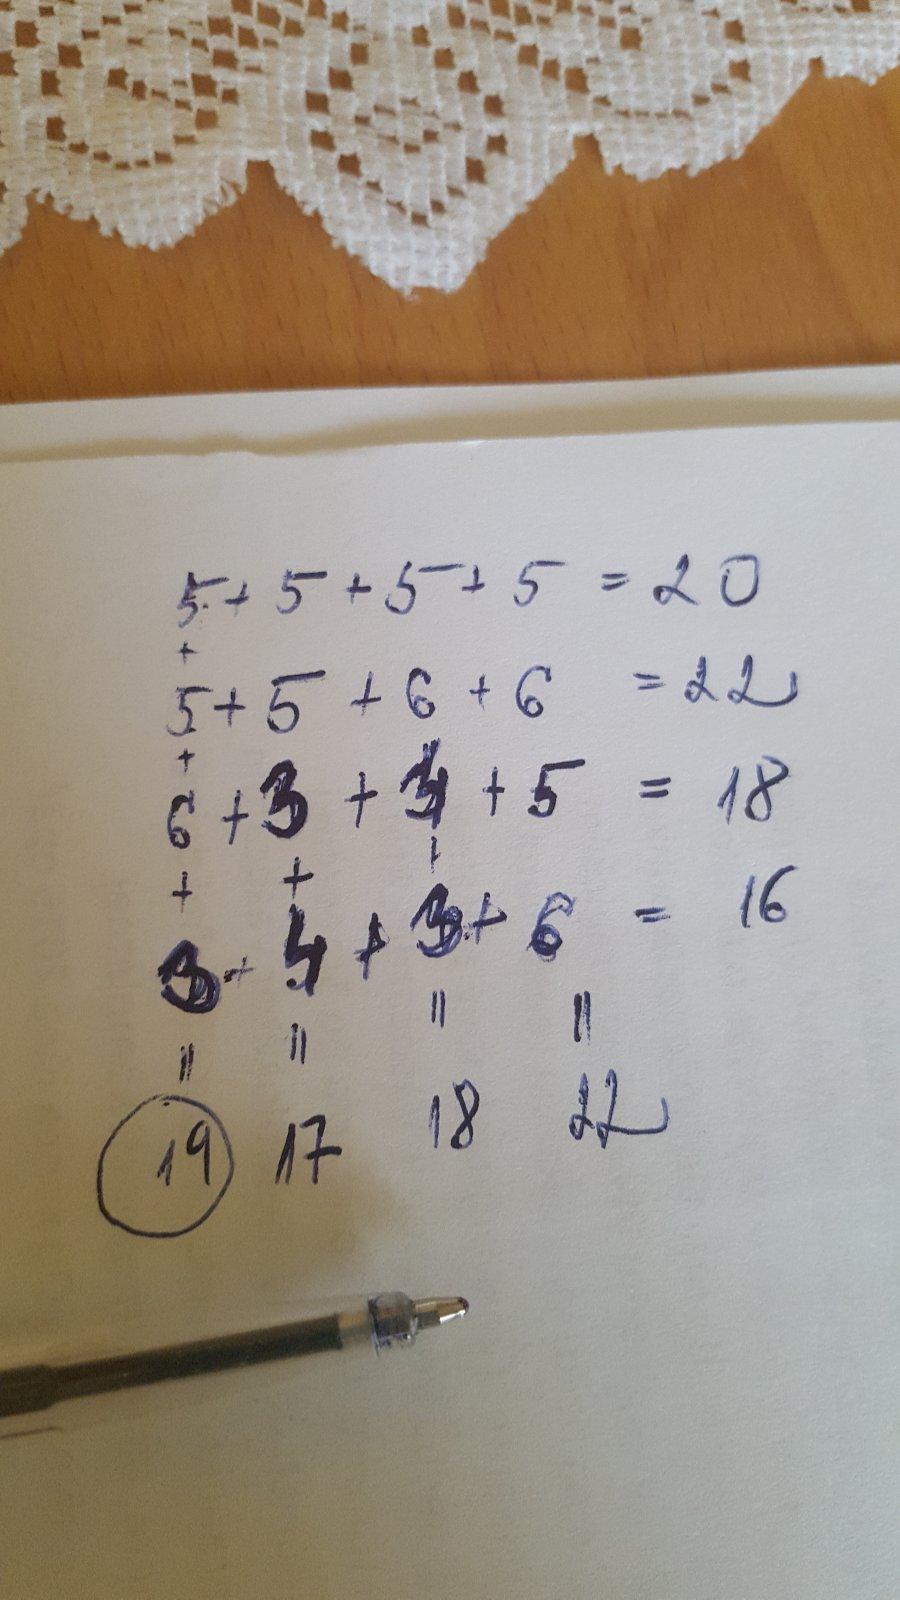 5 + 5 + 5 + 5 = 20
+
5 + 5 + 6 + 6 = 22
+
6 + 3 + 4 + 5 = 18
+ + +
3 + 4 + 3 + 6 = 16
= = = =
19 17 18 22